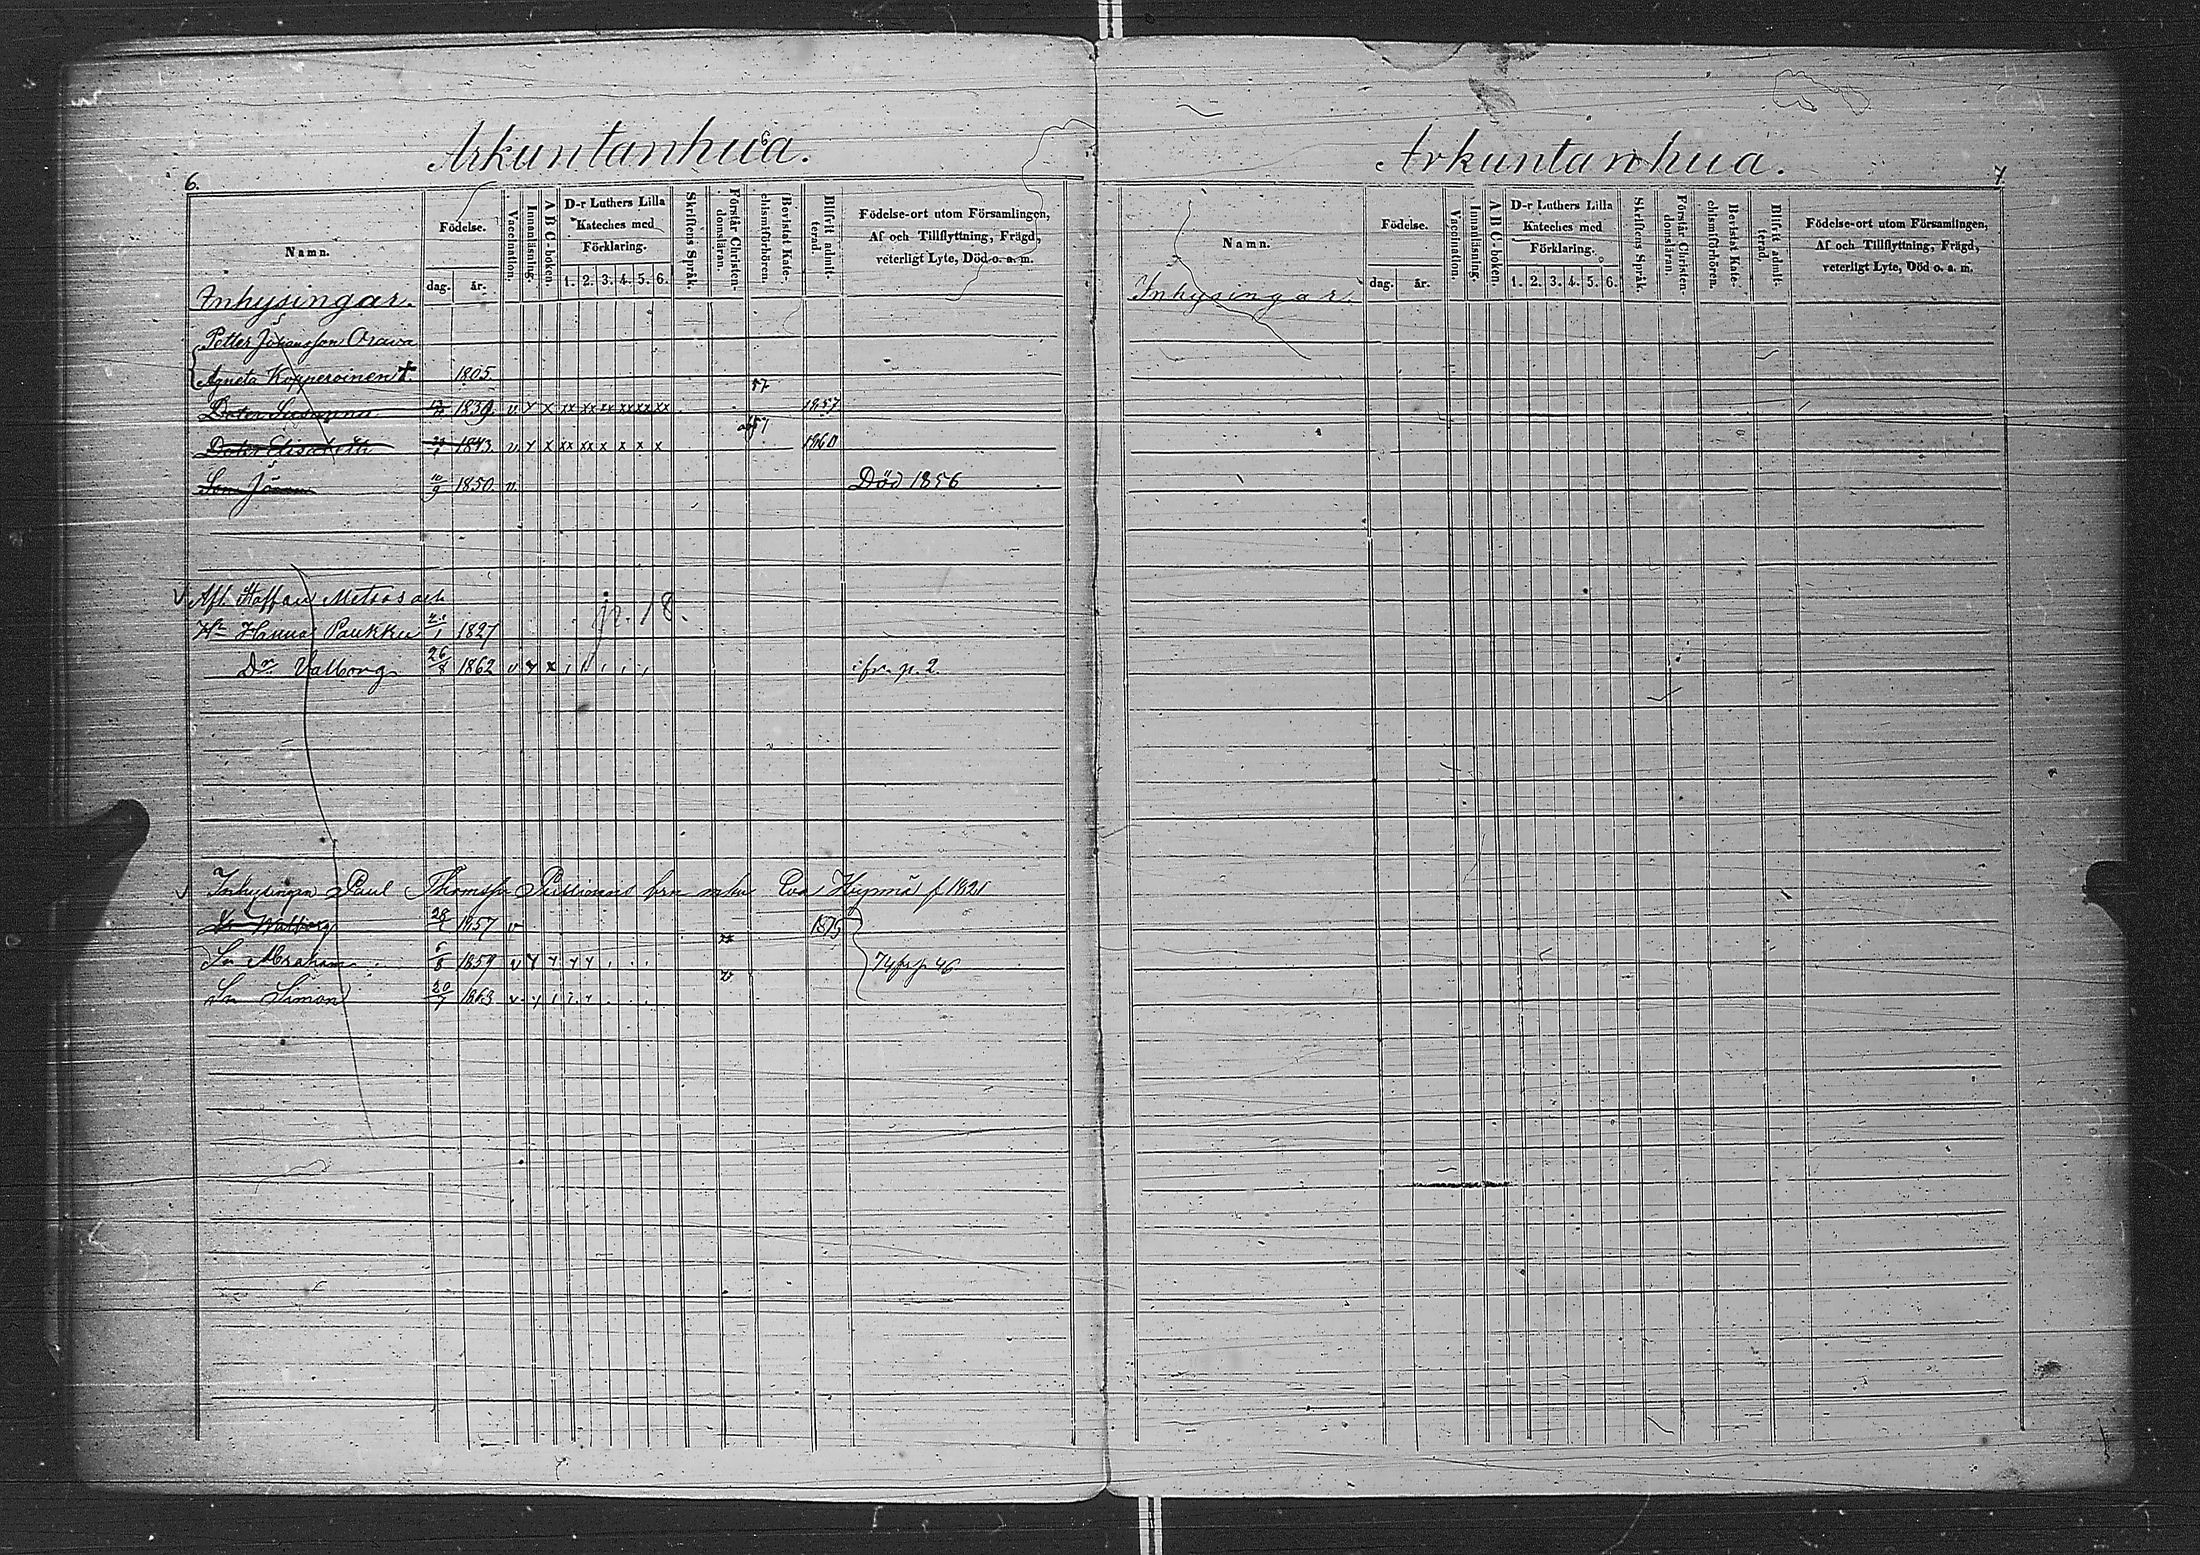 Arkuntanhua.
6.
Namn.
Födelse.
dag. år.
Vaccination.
Innanläsning.
A B C-boken.
D-r Luthers Lilla
Kateches med
Förklaring.
1. 2. 3. 4. 5. 6.
Skriftens Språk.
Förstår Christen-
domsläran.
Bevistat Kate-
chismiförhören.
Blifvit admit-
terad.
Födelse-ort utom Församlingen,
Af och Tillflyttning, Frägd,
veterligt Lyte, Död o. a. m.
Inhysingar.
Petter Johansson Orawa
Agneta Kopperoinen †. 1805.
57
Dotter Susanna 1839. v. x x xx xx xx xx xx xx 1857
57
Dotter Elisabeth 1843. v. x x xx xx x x x x 1860
Son Johan 10/9 1850. v. Död 1856
Aft. Staffan Metsos och
p. 18.
Hu Hanna Paukku 20/1 1827
Dr Valborg 26/8 1862 v x x ifr. p. 2.
Inhysingen Paul Thomsson enka Eva f 1821
Dr Walborg 28/1 1857 v 1875
Sn Abraham 6/8 1859 v 74 fr p 46
Sn Simon 20/7 1863 v
Arkuntanhua.
7.
Namn.
Födelse.
dag. år.
Vaccination.
Innanläsning.
A B C-boken.
D-r Luthers Lilla
Kateches med
Förklaring.
1. 2. 3. 4. 5. 6.
Skriftens Språk.
Förstår Christen-
domsläran.
Bevistat Kate-
chismiförhören.
Blifvit admit-
terad.
Födelse-ort utom Församlingen,
Af och Tillflyttning, Frägd,
veterligt Lyte, Död o. a. m.
Inhysingar.